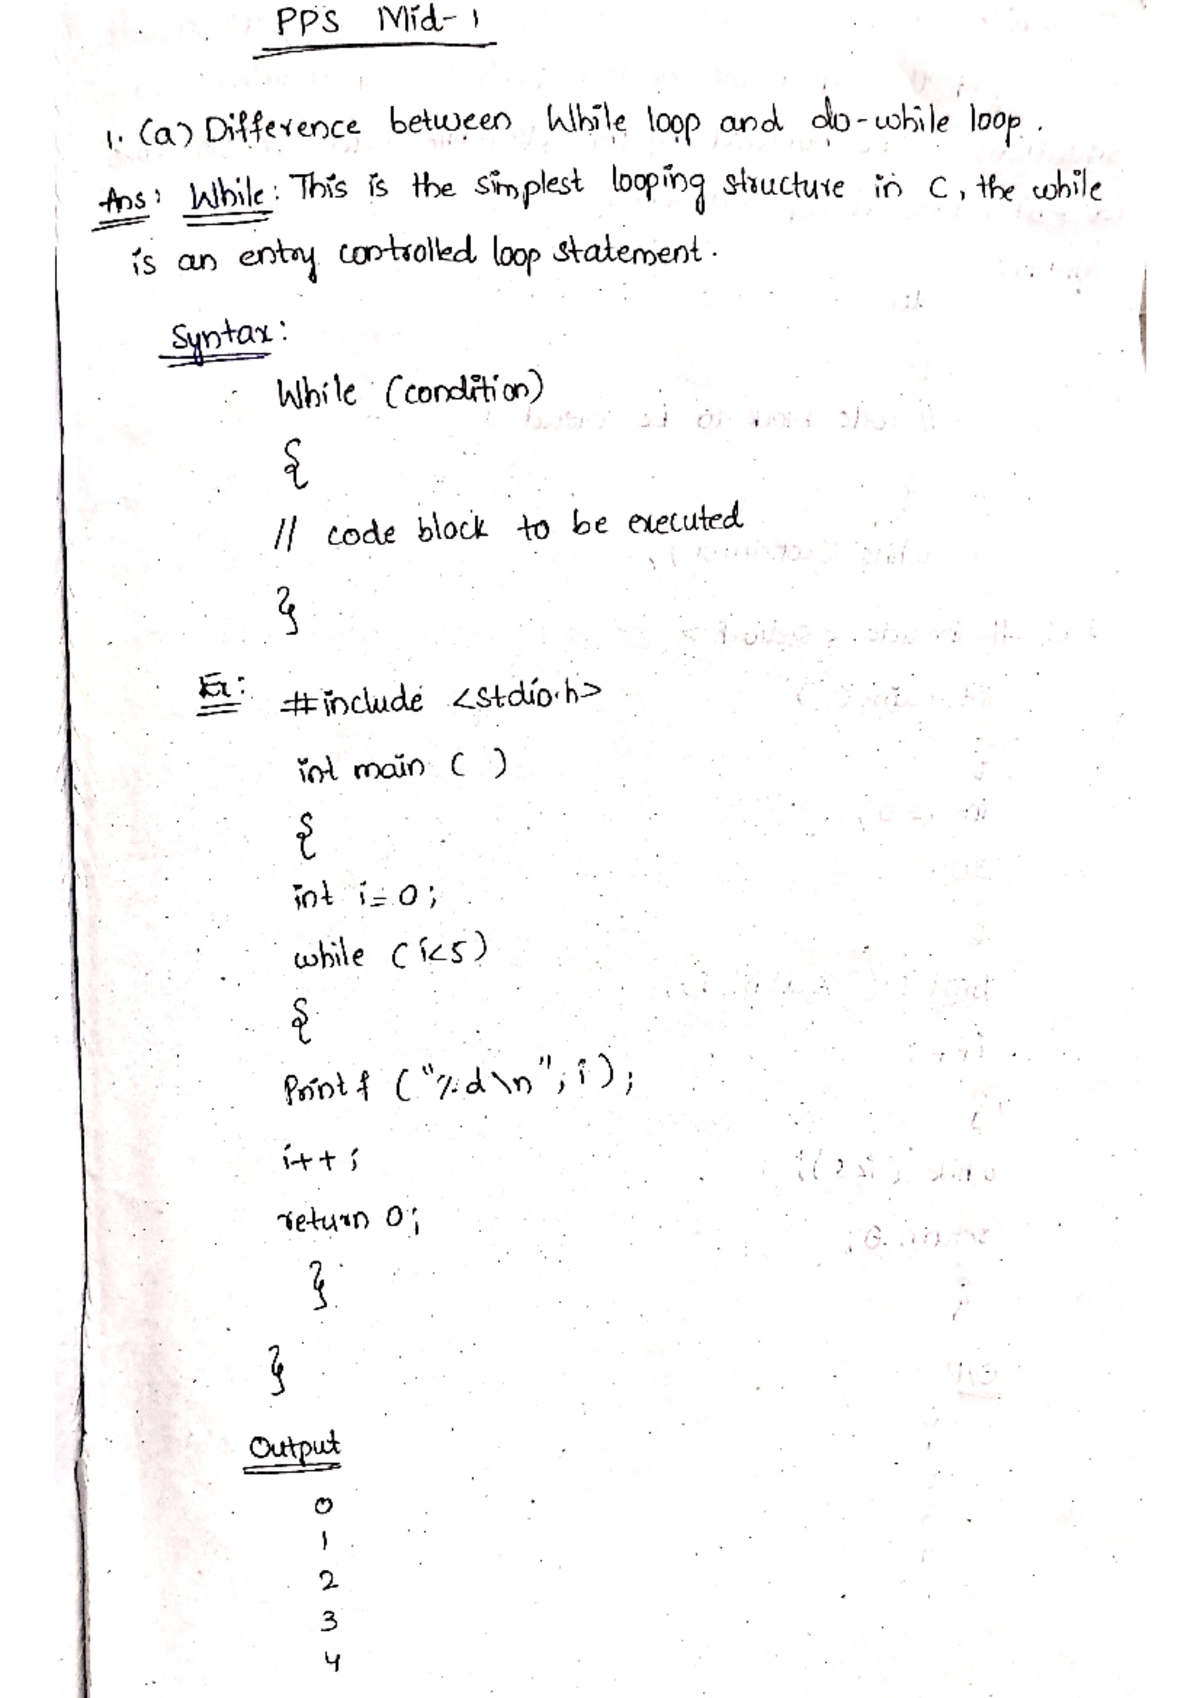 PPS Mid-1
1. (a) Difference between While loop and do-while loop.
Ans: While: This is the simplest looping structure in C, the while
is an entry controlled loop statement.
Syntax:
While (condition)
{
// code block to be executed
}
Ex: #include <stdio.h>
int main ( )
{
int i=0;
while (i<5)
{
Printf ("%d\n", i);
i++;
return 0;
}
}
Output
0
1
2
3
4